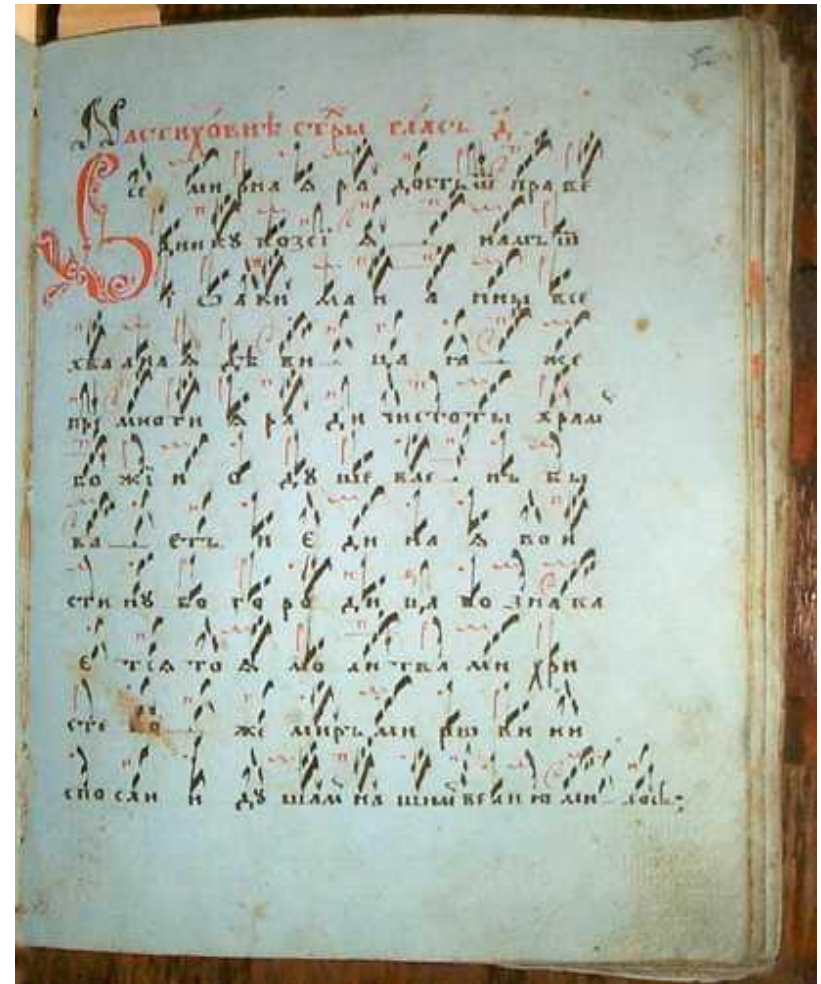 На стихо́внѣ стр҃ы гла́съ д҃
Все ми рна ѧ ра дость ѿ пра ве
дникꙋ возсї ѧ намъ ѿ
І ѡаки ма и а нны все
хва лна ѧ дѣ ви ца ꙗ же
прі многи ѧ ра ди чистоты храм
бо жїи о дꙋ ше вле нъ бы
ва етъ и є ди на ѧ во и
стин нꙋ бо го ро ди ца по зна ва
є тсѧ то ѧ мо литва ми хри
сте бо же миръ ми рꙋ ни
спосли и дꙋ шам на шим велию ми лость;